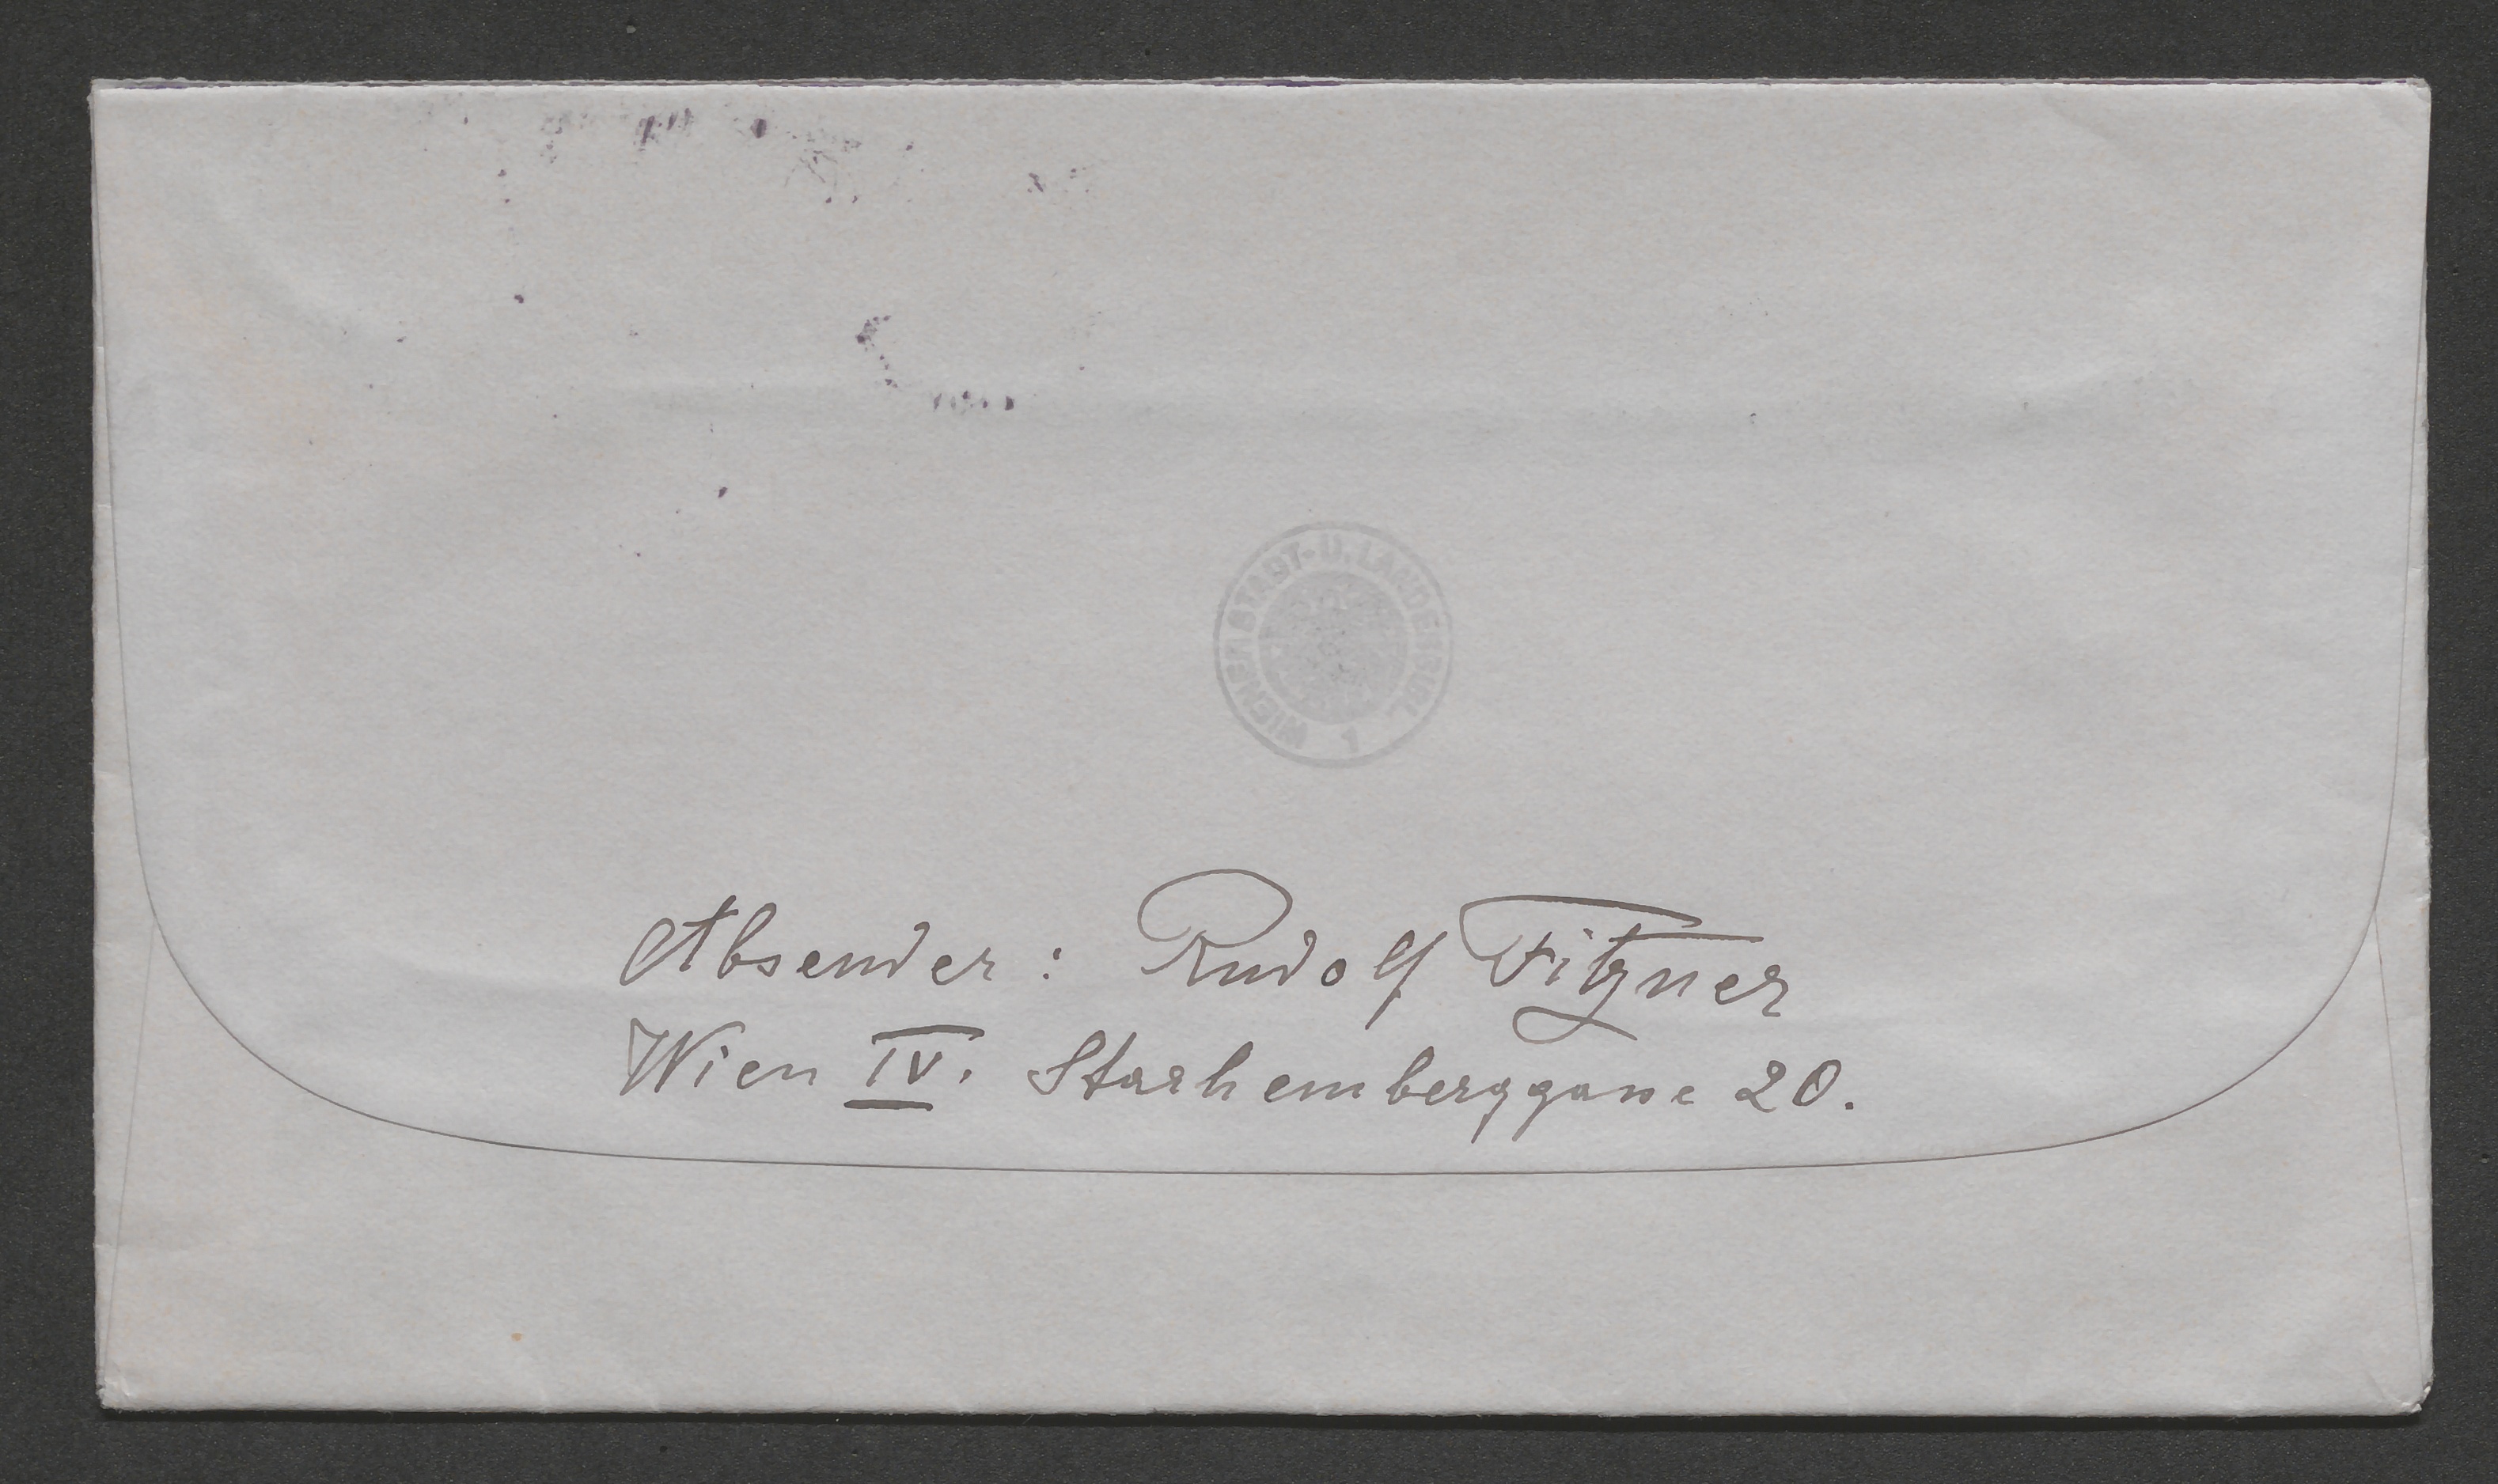 WIENER STADT- U. LANDESBIBL.
1
Absender: Rudolf Fitzner
Wien IV. Starhemberggasse 20.